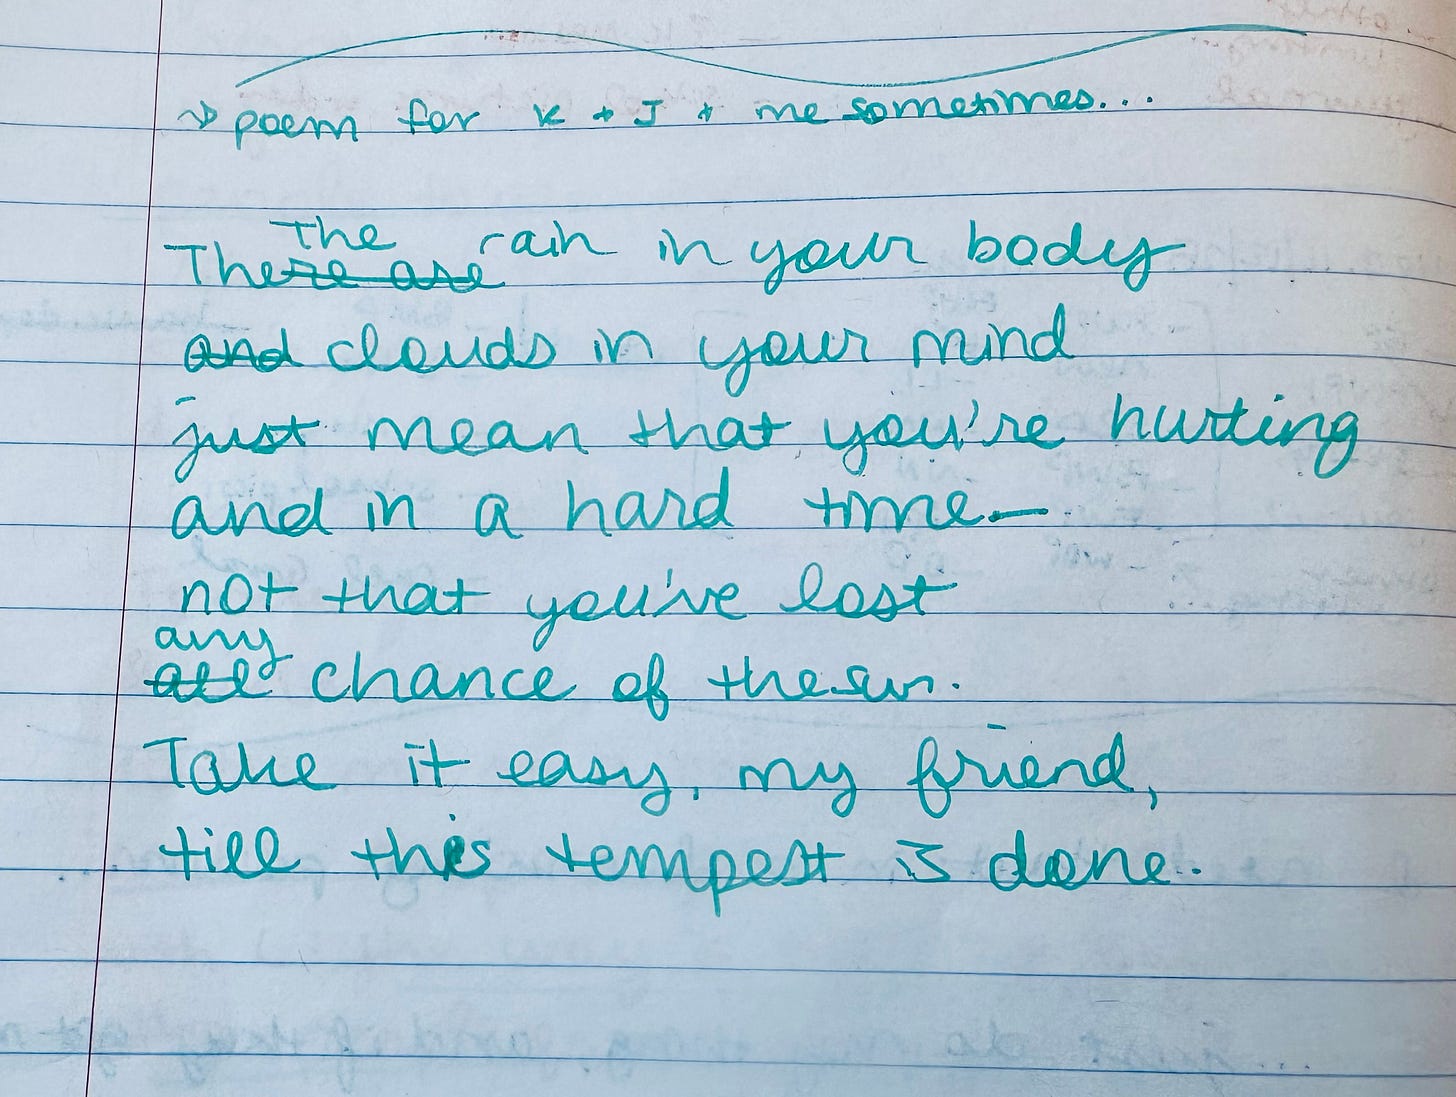 → poem for K + J + me sometimes...
The
There are rain in your body
and clouds in your mind
just mean that you're hurting
and in a hard time—
not that you've lost
any
all chance of the sun.
Take it easy, my friend,
till this tempest is done.